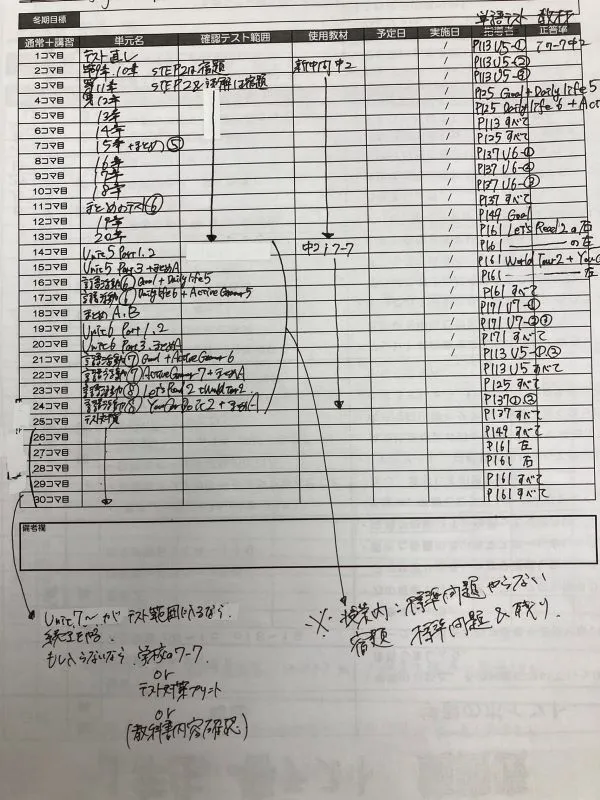 単語テスト 教材
冬期目標
通常+講習 単元名 確認テスト範囲 使用教材 予定日 実施日 指導者 正答率
1コマ目 テスト直し / P113 U5-① ワーク中2
2コマ目 第9章、10章 STEP2は宿題 新中問 中2 / P113 U5-②
3コマ目 第11章 STEP2&読解は宿題 / P113 U5-③
4コマ目 第12章 / P125 Goal + Daily life 5
5コマ目 13章 / P125 Daily life 6 + Act
6コマ目 14章 / P113 すべて
7コマ目 15章 +まとめ⑤ / P125 すべて
8コマ目 16章 / P137 U6-①
9コマ目 17章 / P137 U6-②
10コマ目 18章 / P137 U6-③
11コマ目 まとめのテスト⑥ / P137 すべて
12コマ目 19章 / P149 Goal
13コマ目 20章 / P161 Let's Read 2の右
14コマ目 Unit 5 Part 1.2 中2ワーク / P161 の左
15コマ目 Unit 5 Part 3 +まとめA / P161 World Tour 2 + You C
16コマ目 言語活動(6) Goal + Daily life 5 / P161 左
17コマ目 言語活動(6) Daily life 6 + Active Gramar 5 / P161 すべて
18コマ目 まとめ A.B / P171 U7-①
19コマ目 Unit 6 Part 1.2 / P171 U7-②③
20コマ目 Unit 6 Part 3.まとめA / P171 すべて
21コマ目 言語活動(7) Goal + Active Gramar 6 / P113 U5-①.③
22コマ目 言語活動(7) Active Gramar 7 + まとめA P113 U5すべて
23コマ目 言語活動(8) Let's Read 2 + World Tour 2. P125 すべて
24コマ目 言語活動(8) You Can Do It 2 + まとめ P137 ①③
25コマ目 テスト対策 P137 すべて
26コマ目 P149 すべて
27コマ目 P161 左
28コマ目 P161 右
29コマ目 P161 すべて
30コマ目 P161 すべて
備考欄
Unit 7〜がテスト範囲に入るなら
続きをやる.
もし入らないなら.学校のワーク
or
テスト対策プリント
or
(教科書内容確認)
※授業内:標準問題やらない
宿題 標準問題&残り.